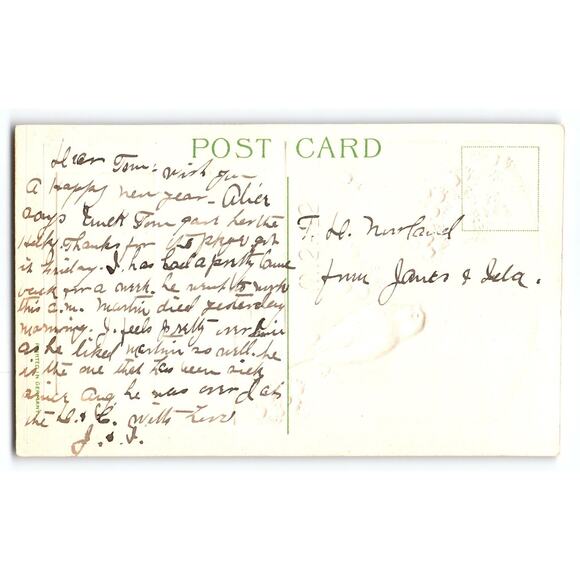 POST CARD
Dear Tom: wish you
A happy new year - Alice
says Unck Tom gave her the
Thanks for the paper got
it Friday. J. has had a pretty lame
back for a week. he went to work
this a.m. Martin died yesterday
morning. J. feels pretty over him
as he liked martin so well. he
is the one that has been sick
since Aug he was over at
the D. & C. With Love
J. & I.
T. H. Norland
from James & Ida.
PRINTED IN GERMANY